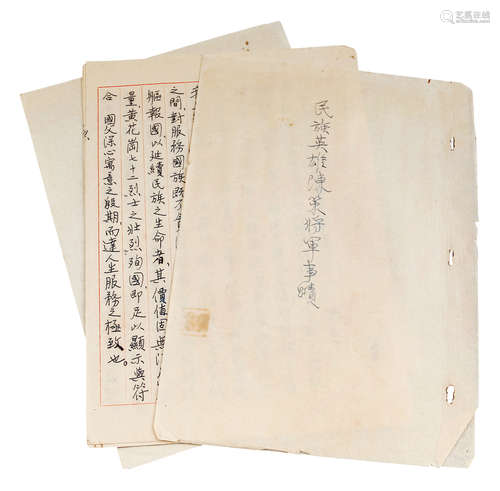 艺狐在线
民族英雄陳策將軍事蹟
之間,對服務國族既不
軀報國,以延續民族之生命者,其價值固無
量,黃花崗七十二烈士之壯烈殉國,即足以顯示與符
合 國父深心寓意之殷期,而達人生服務之極致也。